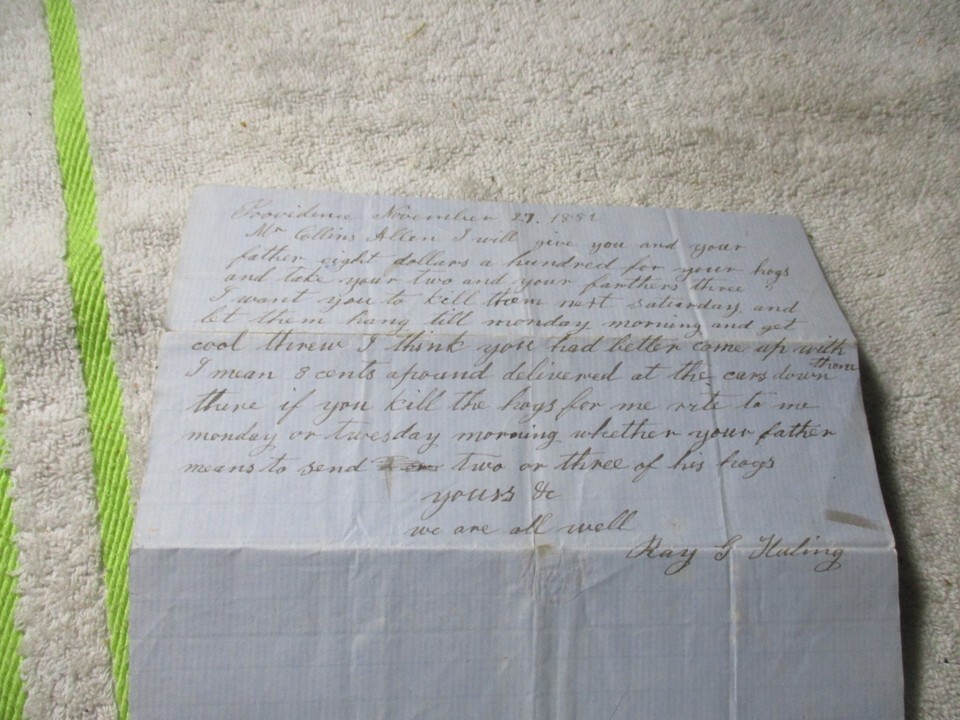 Providence November 27. 1882
Mr Collins Allen I will give you and your
father eight dollars a hundred for your hogs
and take your two and your farthers three
I want you to kill them next saturday and
let them hang till monday morning and get
cool threw I think you had better come up with
them
I mean 8 cents apound delivered at the cars down
there if you kill the hogs for me rite to me
monday or twesday morning whether your father
means to send two or three of his hogs
yours &c
we are all well
Ray G Huling